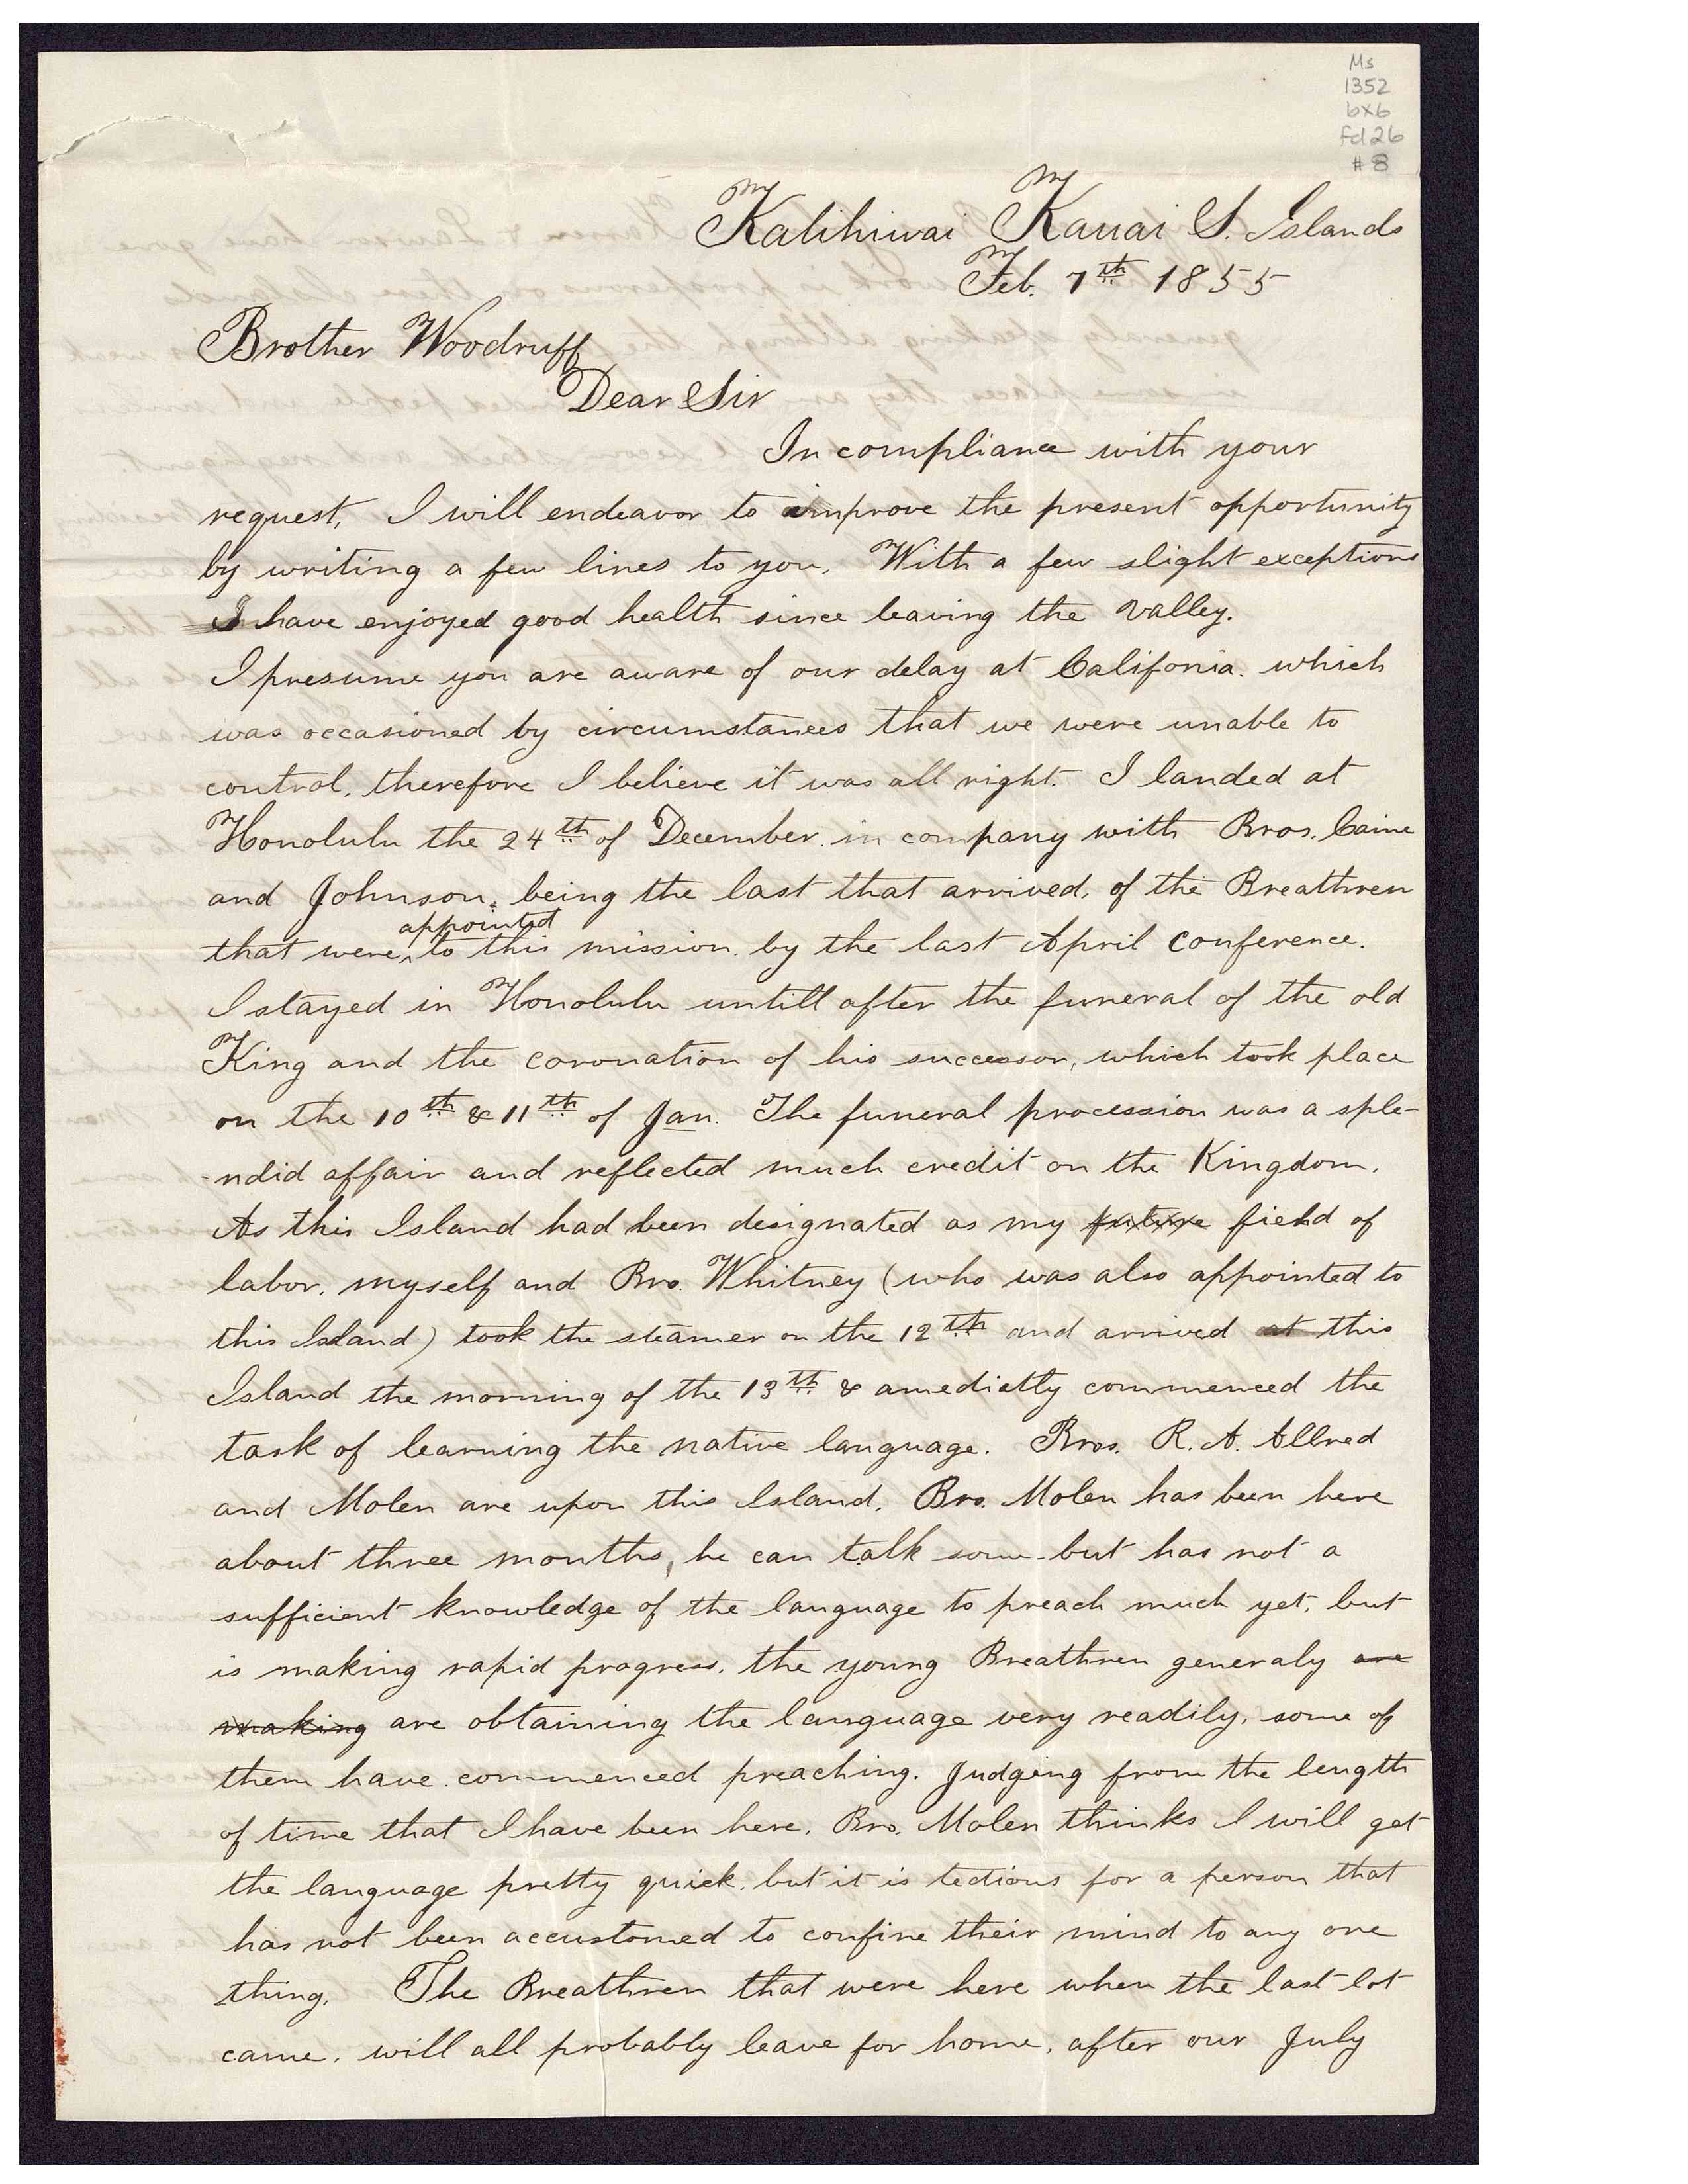 Ms
1352
bx6
fd26
#8
Kalihiwai Kauai S. Islands
Feb. 7th 1855
Brother Woodruff
Dear Sir
In compliance with your
request, I will endeavor to improve the present opportunity
by writing a few lines to you. With a few slight exceptions
I have enjoyed good health since leaving the valley.
I presume you are aware of our delay at Califonia. which
was occasioned by circumstances that we were unable to
control, therefore I believe it was all right. I landed at
Honolulu the 24th of December. in company with Bros. Caine
and Johnson. being the last that arrived, of the Breathren
appointed
that were to this mission. by the last April Conference.
I stayed in Honolulu untill after the funeral of the old
King and the coronation of his successor, which took place
on the 10th & 11th of Jan. The funeral procession was a sple-
-ndid affair and reflected much credit on the Kingdom.
As this Island had been designated as my future field of
labor, myself and Bro. Whitney (who was also appointed to
this Island) took the steamer on the 12th and arrived at this
Island the morning of the 13th & amediatly commenced the
task of learning the native language. Bros. R. A. Allred
and Molen are upon this Island. Bro. Molen has been here
about three months, he can talk some but has not a
sufficient knowledge of the language to preach much yet, but
is making rapid progress. the young Breathren generaly are
making are obtaining the language very readily, some of
them have commenced preaching. Judging from the length
of time that I have been here. Bro. Molen thinks I will get
the language pretty quick. but it is tedious for a person that
has not been accustomed to confine their mind to any one
thing. The Breathren that were here when the last lot
came, will all probably leave for home, after our July